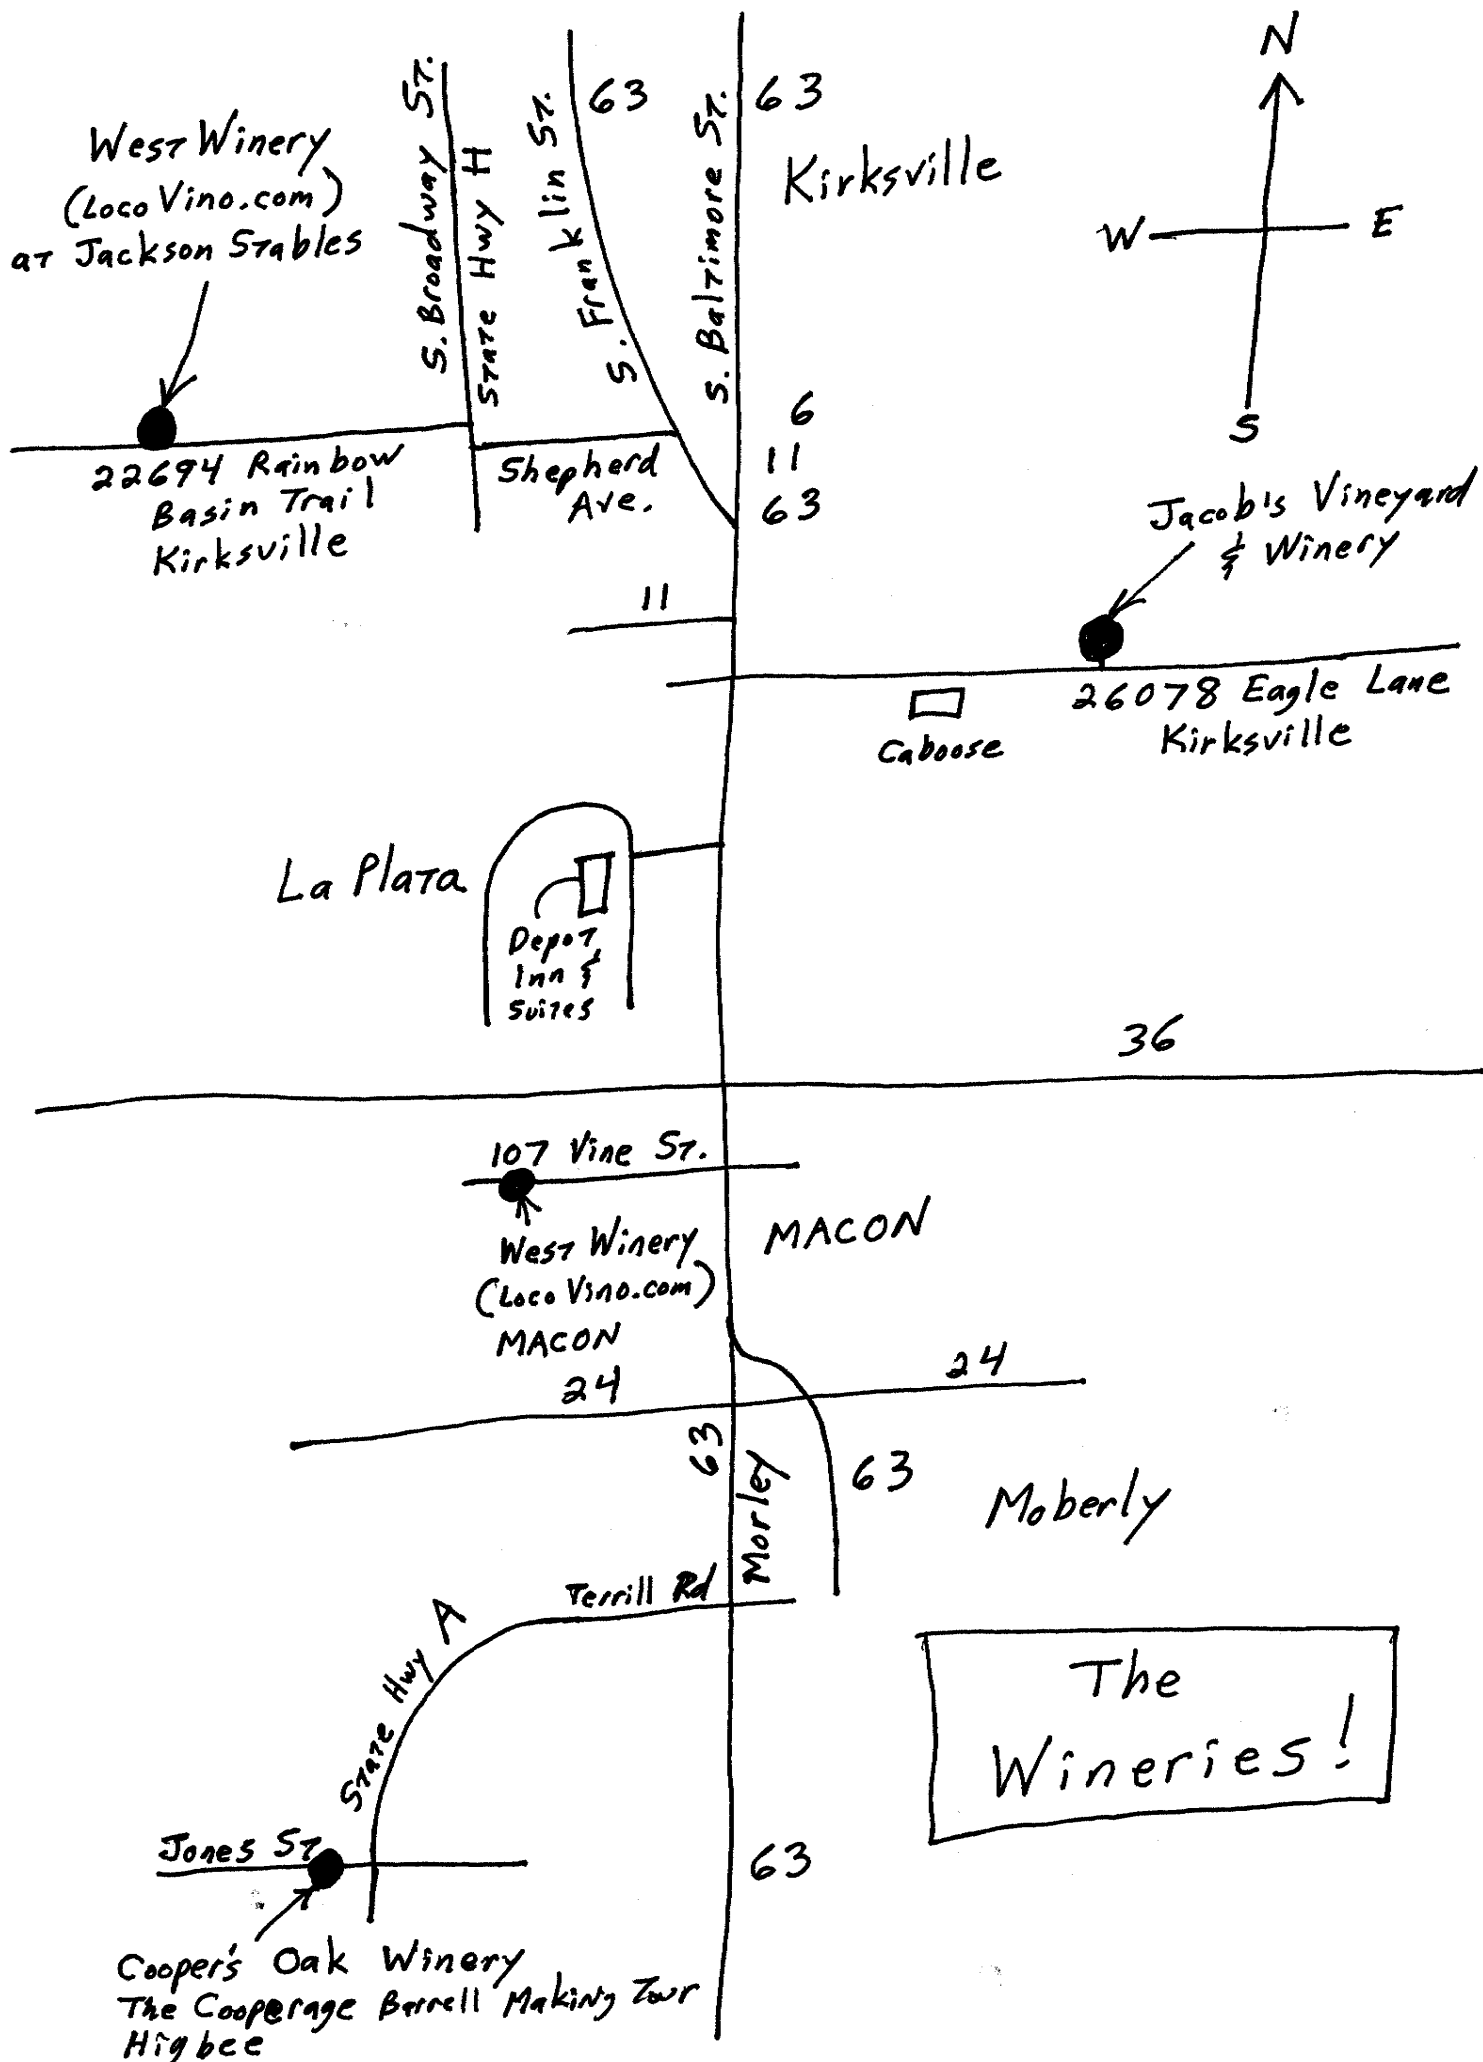 N
W E
S
West Winery
(Loco Vino.com)
at Jackson Stables
S. Broadway St.
State Hwy H
S. Franklin St.
63
S. Baltimore St.
63
Kirksville
6
11
63
22694 Rainbow
Basin Trail
Kirksville
Shepherd
Ave.
Jacob's Vineyard
& Winery
11
26078 Eagle Lane
Kirksville
Caboose
La Plata
Depot
Inn &
Suites
36
107 Vine St.
West Winery
(Loco Vino.com)
MACON
MACON
24
24
63
Morley
63
Moberly
Terrill Rd
State Hwy A
The
Wineries!
Jones St
63
Cooper's Oak Winery
The Cooperage Barrell Making Tour
Higbee